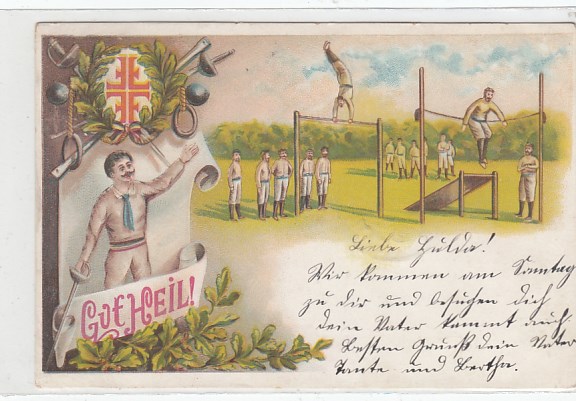 Gut Heil!
Liebe Hulda!
Wir kommen am Sonntag
zu dir und besuchen dich
dein Vater kommt auch
Besten Gruß dein Vater
Tante und Bertha.